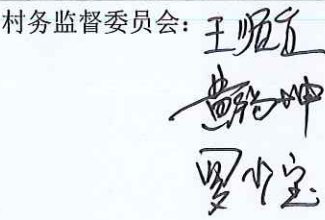 村务监督委员会：王顺
黄 坤
罗小宝